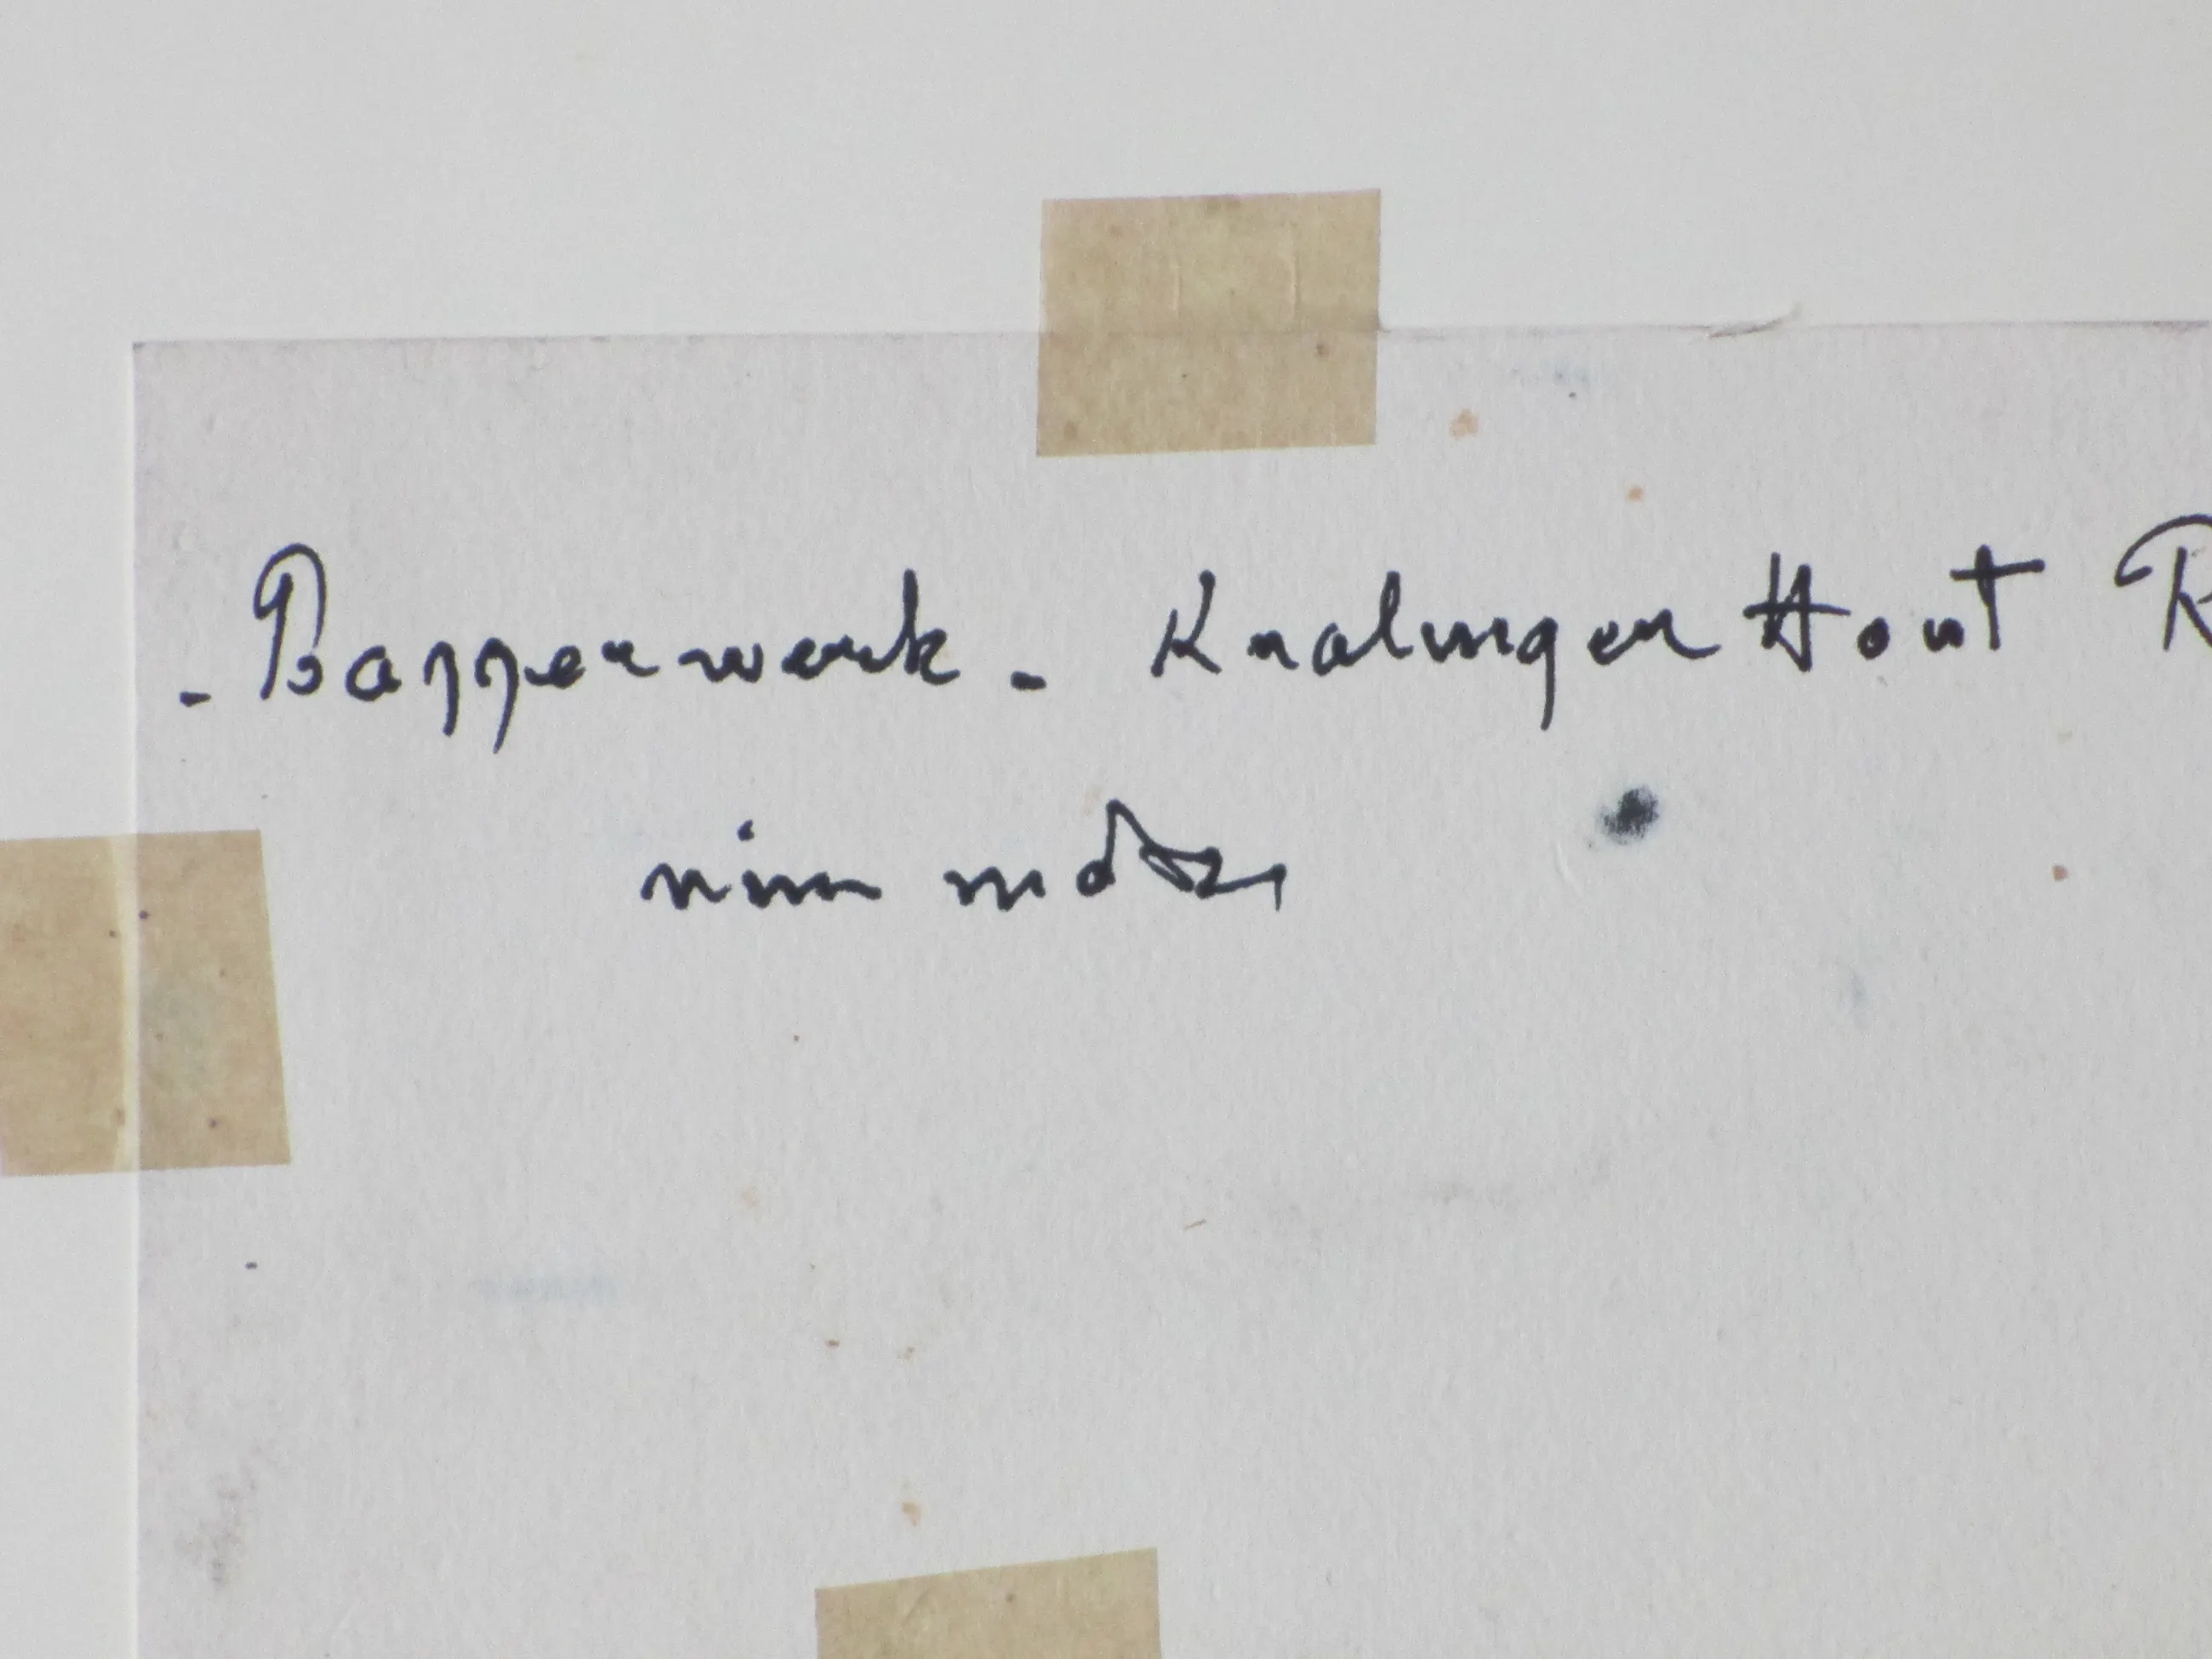 - Baggerwerk - Kralinger Hout R